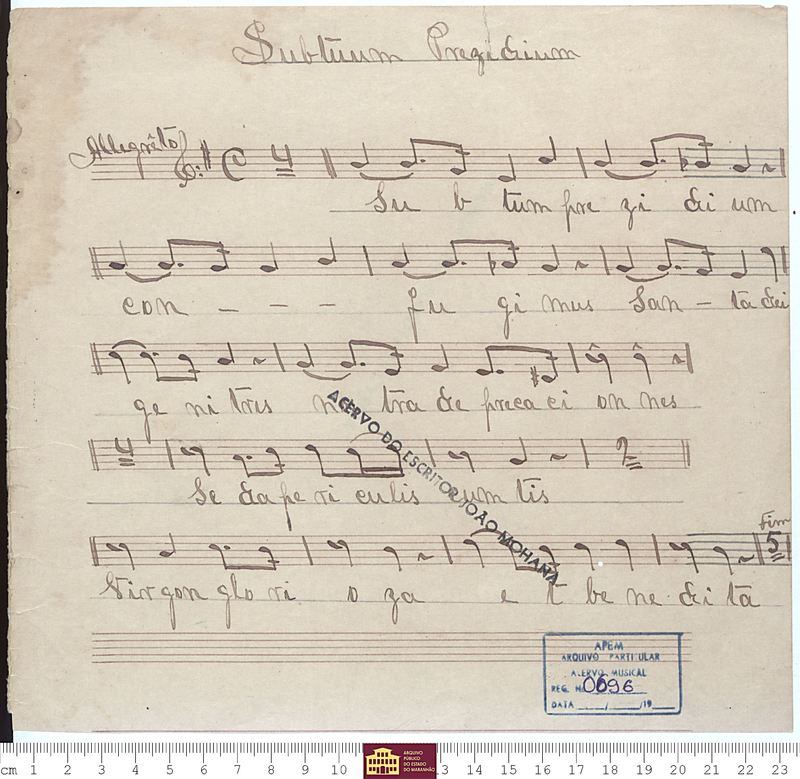 Subtuum Prezidium
Allegrêto C 4
Su b tum pre zi di um
con - - - fu gi mus San - ta dei
ge ni tris no tra de preca ci on nes
4
Se da pe ri culis um tis 2
Fim
5
Virgon glo ri o za e t be ne di ta
ACERVO DO ESCRITOR JOÃO MOHANA
APEM
ARQUIVO PARTICULAR
ACERVO MUSICAL
REG. Nº 0696
DATA ___/___/19__
cm 1 2 3 4 5 6 7 8 9 10 13 14 15 16 17 18 19 20 21 22 23
ARQUIVO
PÚBLICO
DO ESTADO
DO MARANHÃO